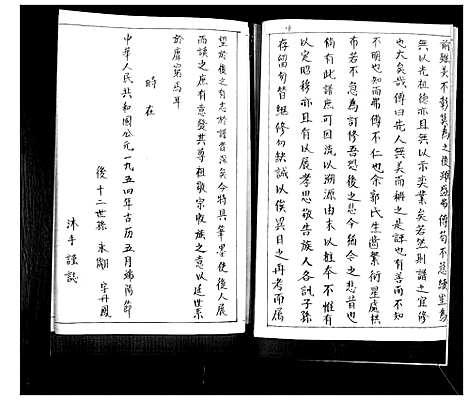 前雖美不彰莫為之後雖盛弗傳苟不急續豈為
無以光祖德亦且無以示奕葉矣若然則譜之宜修
也大矣哉傳曰先人無美而稱之是誣也有善而不
不明也知而弗傳不仁也余郭氏生齒繁衍星處棋
布若不急為訂修吾恐後之悲今猶今之悲昔也
倘有此譜庶可因流以溯源由末以推本不惟有
以定昭穆亦且有以展孝思敬告族人各訊子孫
存留勿替繼修勿缺誠以俟異日之再考而屬
望於後之有志於譜者深矣今特具筆墨使後人展
而讀之庶有意發其尊祖敬宗收族之意以延世系
於靡窮焉耳
時在
中華人民共和國公元一九五四年古历五月端陽節
後十二世孫 永剛 字丹鳳
沐手謹誌